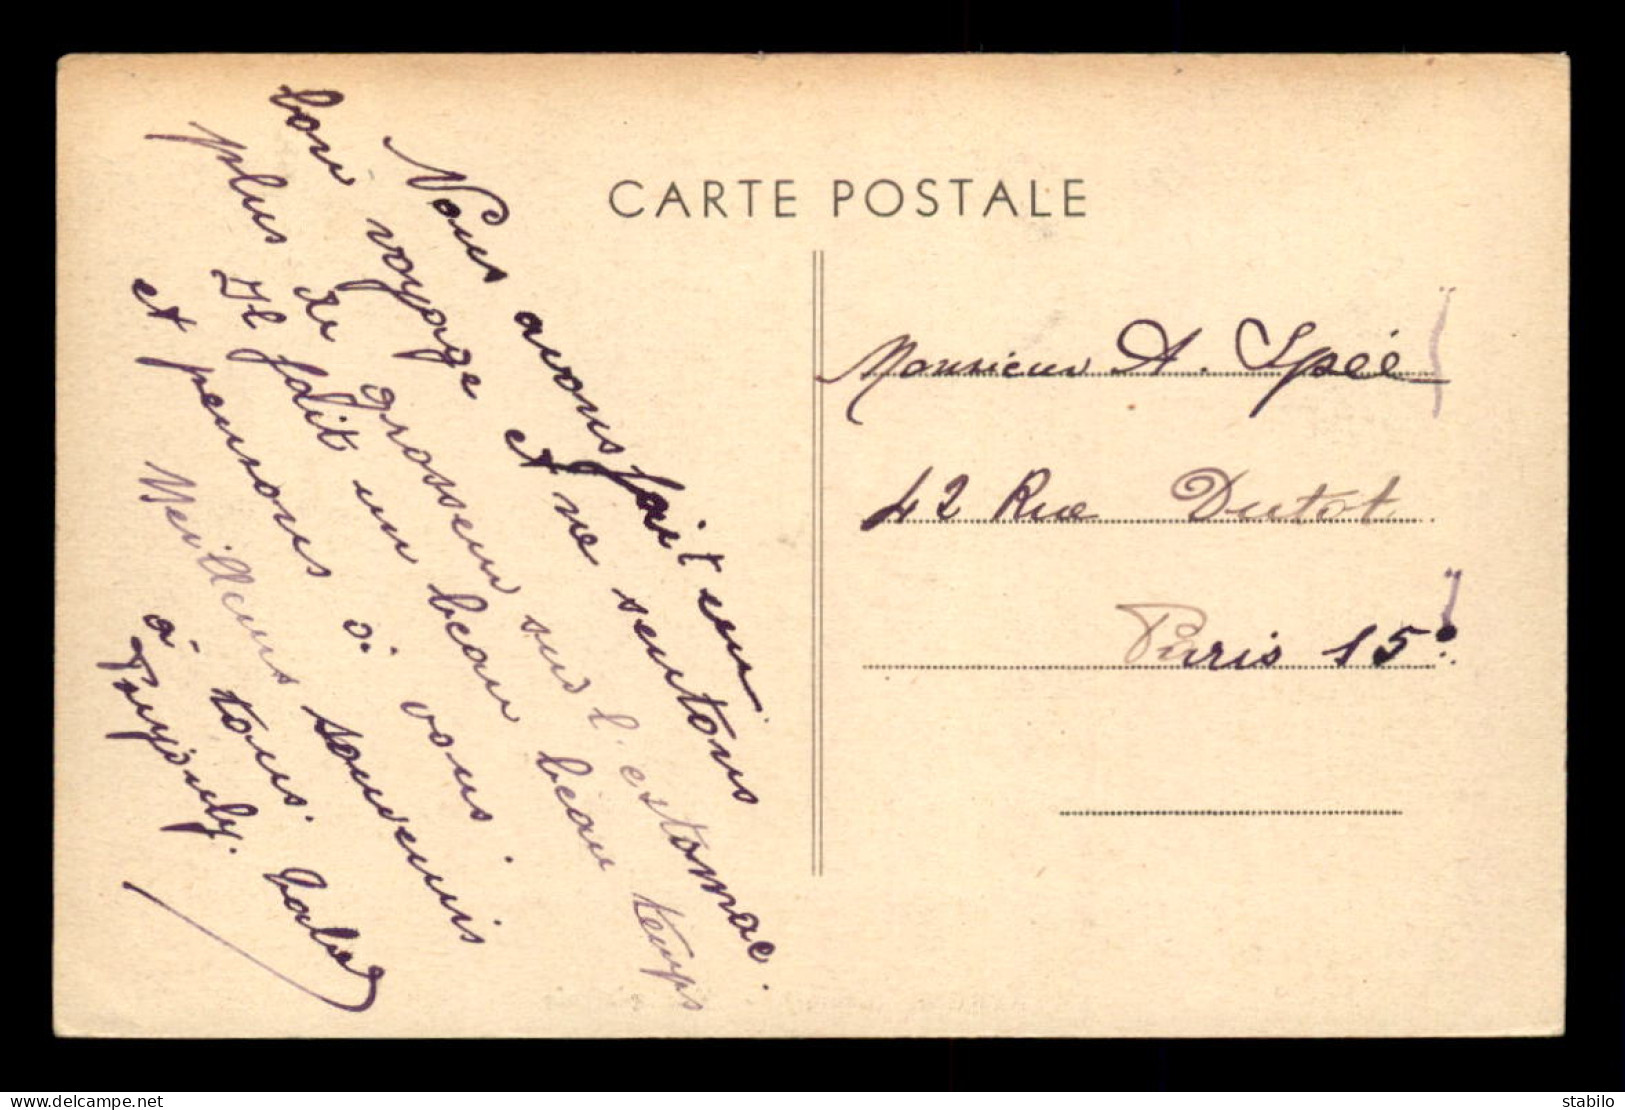 CARTE POSTALE
Nous avons fait un
bon voyage et ne sentons
plus de grosseur sur l'estomac.
Il fait un beau beau temps
et pensons à vous.
Meilleurs souvenirs
à tous.
Monsieur A. Spéé
42 Rue Dutot
Paris 15e
delcampe.net
stabilo